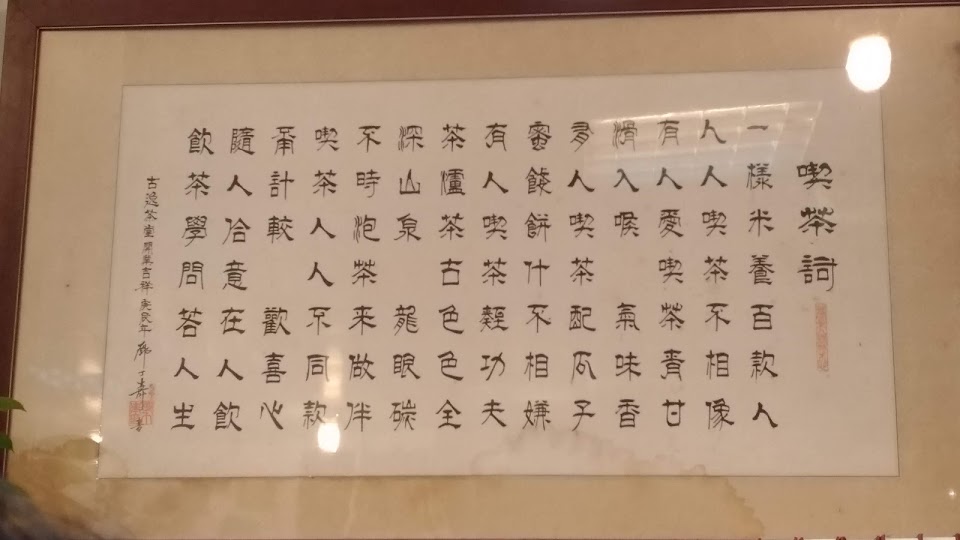 喫茶詞
一樣米養百款人
人人喫茶不相像
有人愛喫茶甘
滑入喉 氣味香
人喫茶配瓜子
蜜餞餅什不相嫌
有人喫茶輕功夫
茶爐茶古色色全
深山泉 龍眼碳
不時泡茶來做伴
喫茶人人不同款
甭計較 歡喜心
隨人佮意在人飲
飲茶學問若人生
古逸茶堂開業吉祥 庚辰年 書